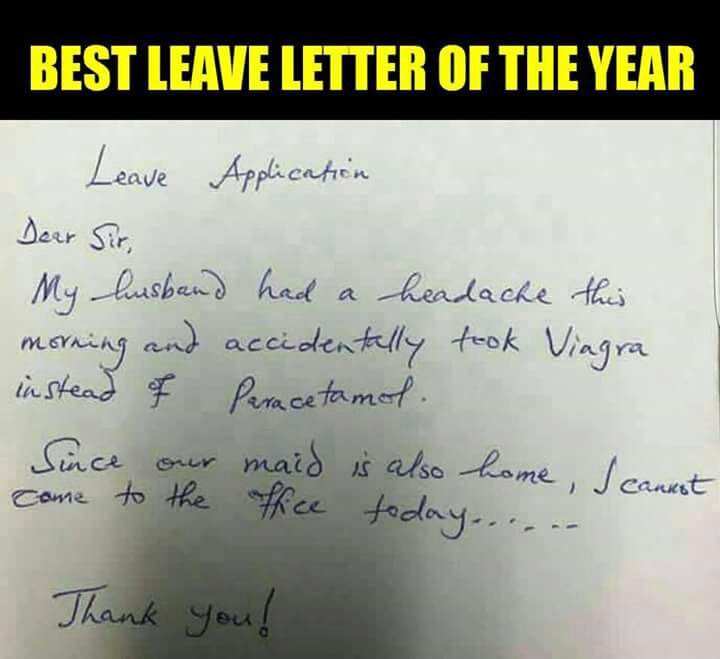 BEST LEAVE LETTER OF THE YEAR
Leave Application
Dear Sir,
My husband had a headache this
morning and accidentally took Viagra
instead of Paracetamol.
Since our maid is also home, I cannot
come to the office today.......
Thank you!